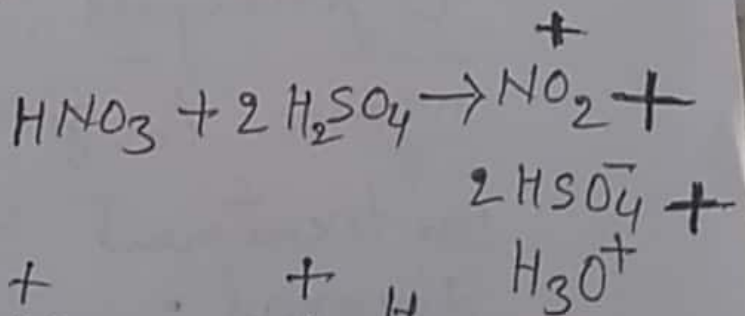 HNO₃ + 2 H₂SO₄ → N⁺O₂ +
2 HSO₄⁻ +
H₃O⁺
+ + H